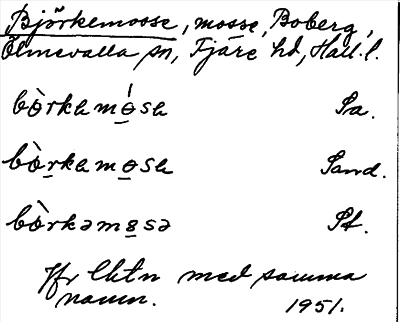 Björkemosse, mosse, Boberg,
Ölmevalla sn, Fjäre hd, Hall. l.
bò̱rkemo̱se Sa.
bò̱rkemo̱se Sand.
bòrkəmo̱sə St.
Jfr lhtn med samma
namn. 1951.